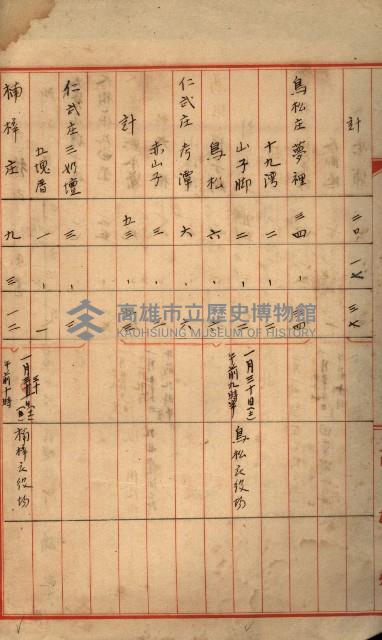 計 二〇 一八 三八
鳥松庄 夢裡 三四 、 三四
十九湾 二 、 二
山子脚 二 、 二
鳥松 六 、 六
仁武庄 考潭 六 、 六
赤山子 三 、 三
計 五三 、 五三
仁武庄 三奶壇 三 、 三
五塊厝 一 、 一
楠梓庄 九 三 一二
一月三十日(土)
午前九時半
鳥松庄役場
午前十時
楠梓庄役場
高雄市立歷史博物館
KAOHSIUNG MUSEUM OF HISTORY